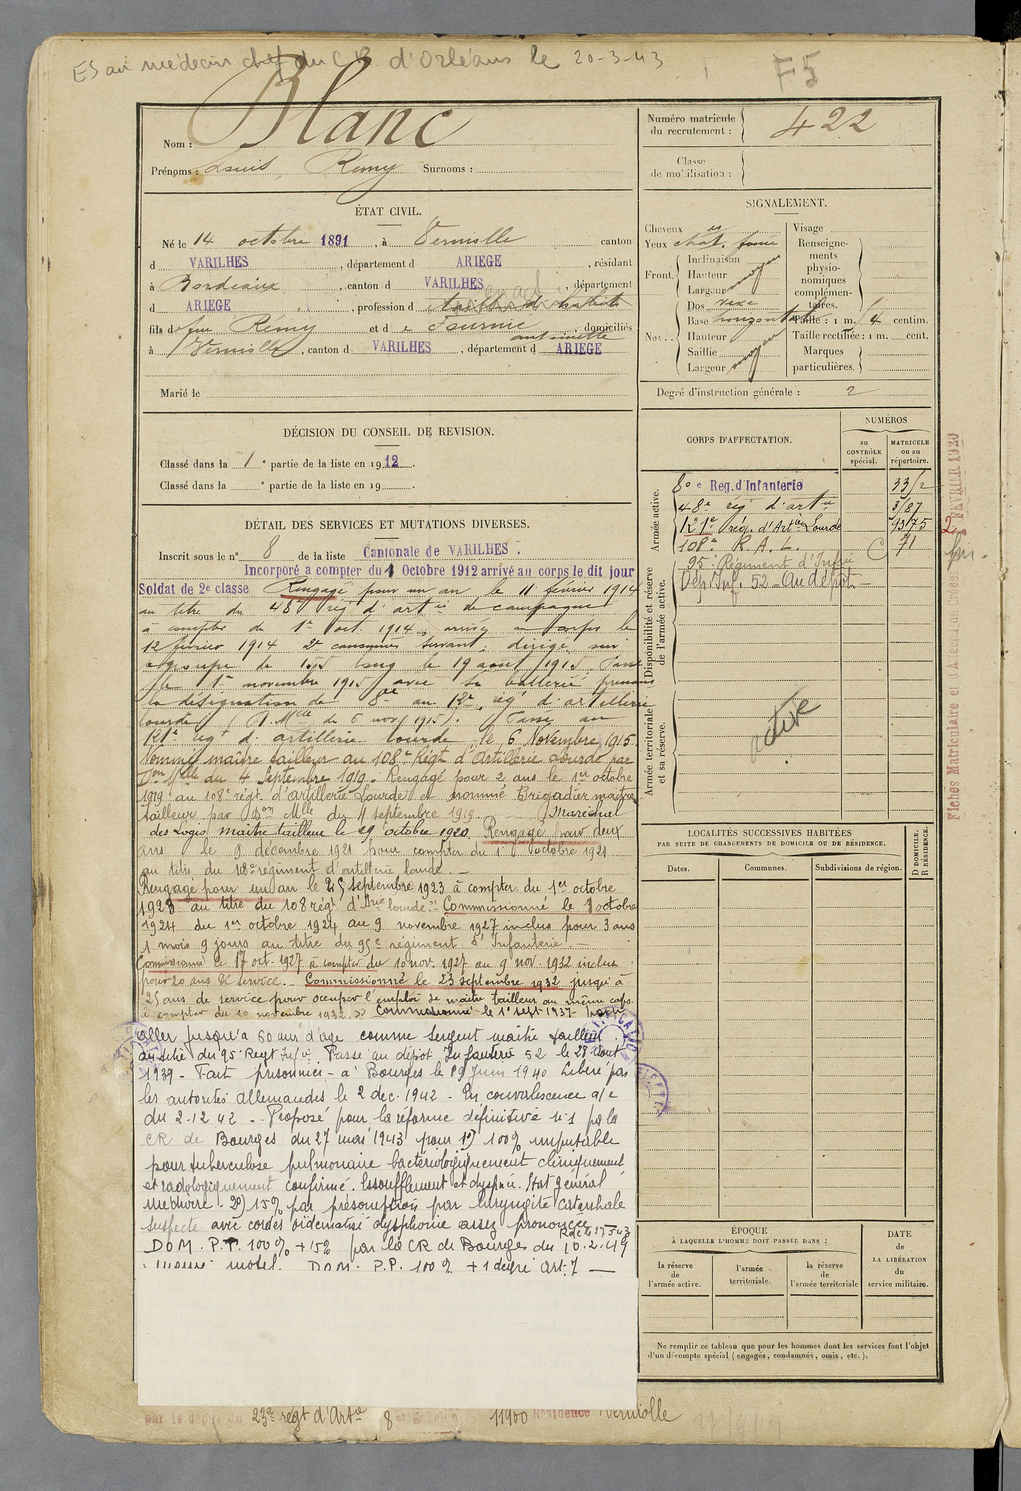 ES au médecin chef du CR d'Orléans le 20-3-43
F5
Nom : Blanc
Prénoms : Louis Rémy Surnoms :
Numéro matricule du recrutement : 422
Classe de mobilisation :
ÉTAT CIVIL.
Né le 14 octobre 1891, à Verniolle canton
d VARILHES, département d ARIEGE, résidant
à Bordeaux, canton d VARILHES, département
d ARIEGE, profession d
fils de feu Rémy et d e Fournié antoinette, domiciliés
à Verniolle, canton d VARILHES, département d ARIEGE
Marié le
SIGNALEMENT.
Cheveux
Yeux chat. foncé
Front. Inclinaison
Hauteur moyen
Largeur
Nez Dos vexe
Base horizontale
Hauteur
Saillie moyen
Largeur
Visage
Renseignements physionomiques complémentaires.
Taille : 1 m. centim.
Taille rectifiée : 1 m. cent.
Marques particulières.
Degré d'instruction générale : 2
DÉCISION DU CONSEIL DE REVISION.
Classé dans la 1e partie de la liste en 1912.
Classé dans la e partie de la liste en 19 .
CORPS D'AFFECTATION.
NUMÉROS
au CONTRÔLE spécial.
MATRICULE ou au répertoire.
Armée active.
80e Reg. d'Infanterie 33/2
48e rég d'artie 3/87
121e rég. d'Artie Lourde 93/75
108e R. A. L. C 71
95e Régiment d'Infrie
Dép. Inf. 52 - Au dépôt -
Disponibilité et réserve de l'armée active.
Armée territoriale et sa réserve.
active
DÉTAIL DES SERVICES ET MUTATIONS DIVERSES.
Inscrit sous le n° 8 de la liste Cantonale de VARILHES.
Incorporé a compter du 1 Octobre 1912 arrivé au corps le dit jour
Soldat de 2e classe Rengagé pour un an le 11 février 1914
au titre du 48e rég d'artie de campagne
à compter du 1er oct. 1914, arrivé au corps le
12 février 1914 2e canonnier servant, dirigé sur
le groupe de 155 long le 19 août 1915 Passé
le 1er novembre 1915 avec sa batterie prenant
la désignation de 8e au rég d'artillerie
lourde ( Mlle du 5 nov 1915). Passé au
121e rég d'artillerie lourde le 6 Novembre 1915.
Nommé maître tailleur au 108e Régt d'Artillerie Lourde par
Don Mlle du 4 Septembre 1919. Rengagé pour 2 ans le 1er octobre
1919 au 108e régt. d'artillerie Lourde et nommé Brigadier maître
tailleur par Don Mlle du 4 septembre 1919. Maréchal
des Logis maître tailleur le 29 octobre 1920. Rengagé pour deux
ans le 9 décembre 1921 pour compter du 1er octobre 1921
au titre du 108e régiment d'artillerie lourde. -
Rengagé pour un an le 25 septembre 1923 à compter du 1er octobre
1923 au titre du 108 régt d'Artie lourde. Commissionné le 1 octobre
1924 du 1er octobre 1924 au 9 novembre 1927 inclus pour 3 ans
1 mois 9 jours au titre du 95e régiment d'Infanterie. -
Commissionné le 17 oct. 1927 à compter du 10 nov. 1927 au 9 nov. 1932 inclus
pour 20 ans de service. - Commissionné le 23 septembre 1932 jusqu'à
25 ans de service pour occuper l'emploi de maître tailleur au même corps
à compter du 10 novembre 1932. Commissionné le 1er sept 1937 pour
aller jusqu'à 60 ans d'age comme sergent maître tailleur
au titre du 95e Regt Infie. Passé au dépôt Infanterie 52 le 28 Aout
1939 - Fait prisonnier - à Bourges le 19 Juin 1940 Libéré par
les autorités allemandes le 2 dec. 1942 - En convalescence a/c
du 2.12.42 - Proposé pour la réforme définitive n°1 par la
CR de Bourges du 27 mai 1943 pour 1°) 100% imputable
pour tuberculose pulmonaire bactériologiquement cliniquement
et radiologiquement confirmé. Essoufflement et dyspnée. Etat général
médiocre. 2°) 15% par présomption par laryngite catarrhale
suspecte avec cordes oedematiés dysphonie assez prononcée
DOM. P.P. 100% + 15% par la CR de Bourges du 10.2.49
même motif. DOM. P.P. 100% + 1 degré Art. 7 -
LOCALITÉS SUCCESSIVES HABITÉES
PAR SUITE DE CHANGEMENTS DE DOMICILE OU DE RÉSIDENCE.
Dates.
Communes.
Subdivisions de région.
D DOMICILE.
R RÉSIDENCE.
ÉPOQUE
À LAQUELLE L'HOMME DOIT PASSER DANS :
la réserve de l'armée active.
l'armée territoriale.
la réserve de l'armée territoriale
DATE de LA LIBÉRATION du service militaire.
Ne remplir ce tableau que pour les hommes dont les services font l'objet
d'un décompte spécial (engagés, condamnés, omis, etc.).
par le dépôt du 23e régt d'Artie 8 11900 Résidence Verniolle